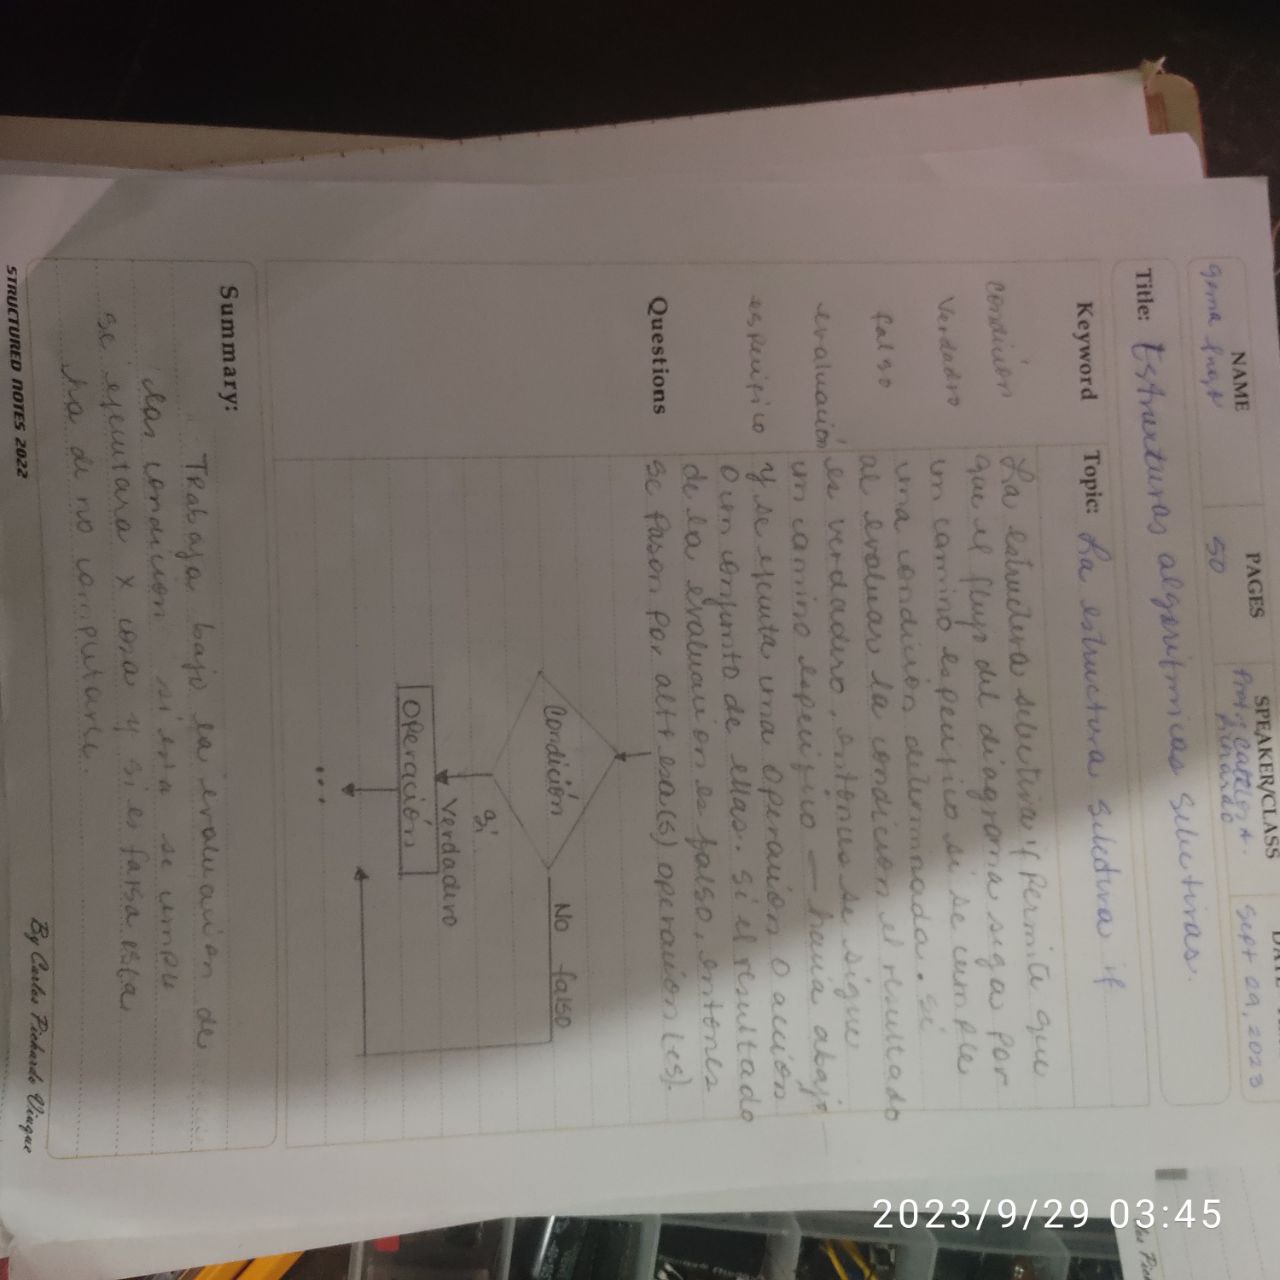 NAME
PAGES
SPEAKER/CLASS
50
Prof. Carlos
Pichardo
Sept 29, 2023
Title: Estructuras algoritmicas Selectivas.
Keyword
Topic: La estructura selectiva if
condición
Verdadero
falso
evaluación
especifico
La estructura selectiva if permite que
que el flujo del diagrama siga por
un camino especifico si se cumple
una condición determinada. Si
al evaluar la condición el resultado
es verdadero, entonces se sigue
un camino especifico — hacia abajo
y se ejecuta una operación o acción
o un conjunto de ellas. Si el resultado
de la evaluación es falso, entonces
se pasan por alto esa(s) operación(es).
Questions
condición
No falso
Si
Verdadero
operación
...
Summary:
Trabaja bajo la evaluación de
las condición si esta se cumple
se ejecutara x cosa y si es falsa esta
ha de no computarse.
STRUCTURED NOTES 2022
By Carlos Pichardo Viuque
2023/9/29 03:45